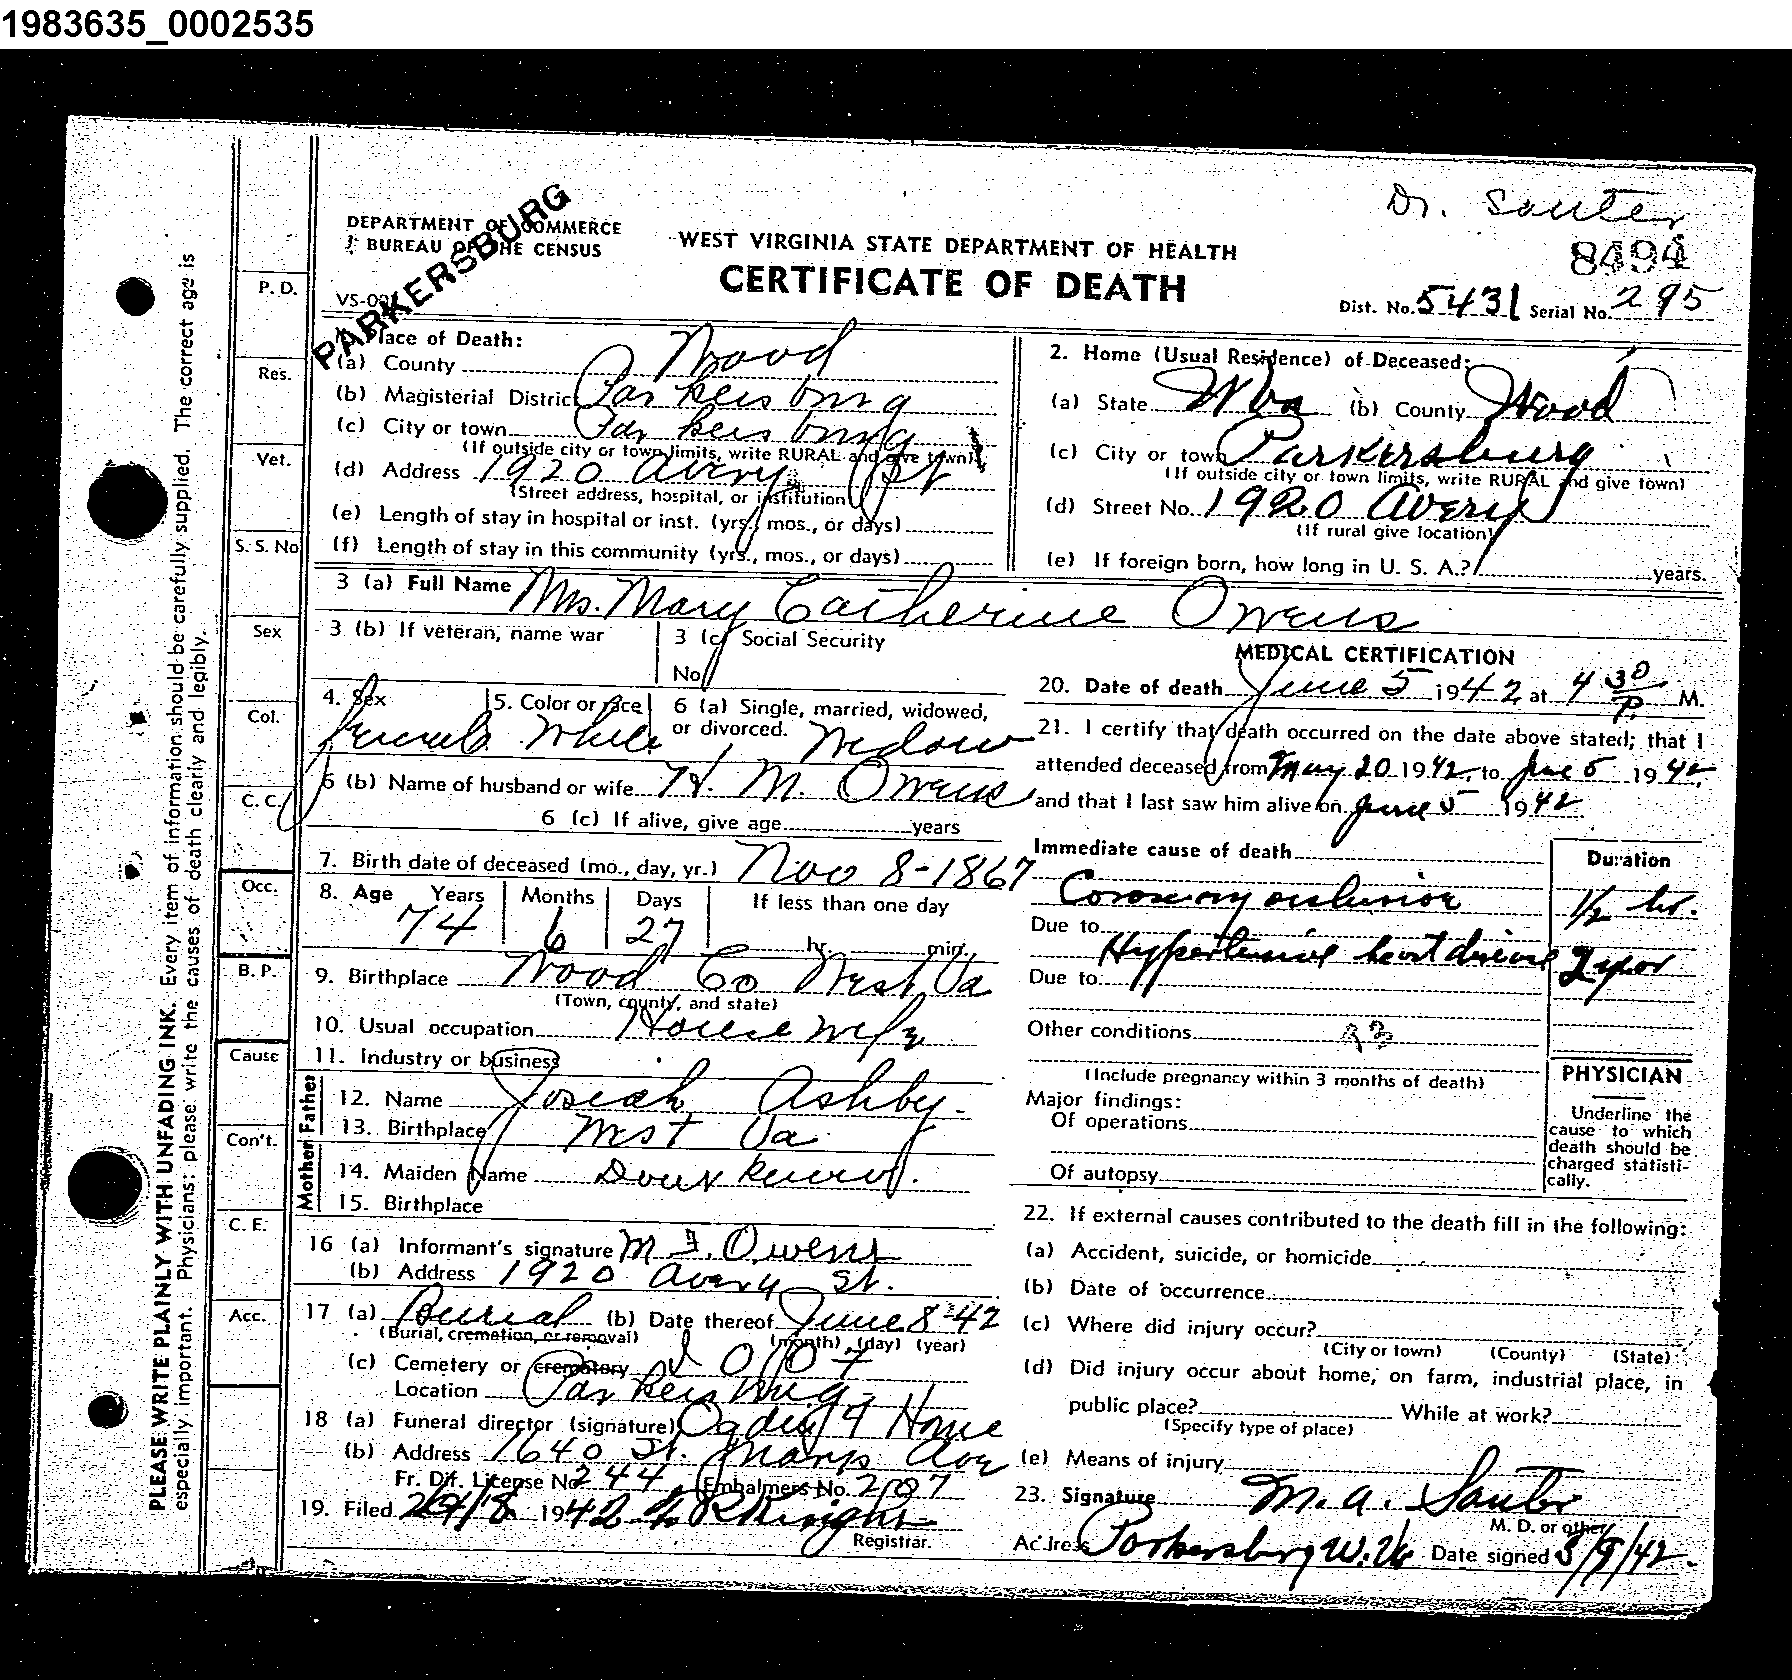 1983635_0002535
Dr. Sauter
8494
DEPARTMENT OF COMMERCE
BUREAU OF THE CENSUS
PARKERSBURG
WEST VIRGINIA STATE DEPARTMENT OF HEALTH
CERTIFICATE OF DEATH
Dist. No. 5431 Serial No. 295
Place of Death:
(a) County Wood
(b) Magisterial District Parkersburg
(c) City or town Parkersburg
(If outside city or town limits, write RURAL and give town)
(d) Address 1920 Avery St
(Street address, hospital, or institution)
(e) Length of stay in hospital or inst. (yrs., mos., or days)
(f) Length of stay in this community (yrs., mos., or days)
2. Home (Usual Residence) of Deceased:
(a) State W Va (b) County Wood
(c) City or town Parkersburg
(If outside city or town limits, write RURAL and give town)
(d) Street No. 1920 Avery
(If rural give location)
(e) If foreign born, how long in U. S. A.? years.
3 (a) Full Name Mrs. Mary Catherine Owens
3 (b) If veteran, name war
3 (c) Social Security
No.
4. Sex female
5. Color or race White
6 (a) Single, married, widowed,
or divorced. Widow
6 (b) Name of husband or wife H. M. Owens
6 (c) If alive, give age years
7. Birth date of deceased (mo., day, yr.) Nov 8-1867
8. Age Years Months Days If less than one day
74 6 27 hr. min.
9. Birthplace Wood Co West Va
(Town, county, and state)
10. Usual occupation Housewife
11. Industry or business
Father
12. Name Josiah Ashby
13. Birthplace West Va
Mother
14. Maiden Name Dont Know.
15. Birthplace
16 (a) Informant's signature M F. Owens
(b) Address 1920 Avery St.
17 (a) Burial (b) Date thereof June 8-42
(Burial, cremation, or removal) (month) (day) (year)
(c) Cemetery or crematory I O O F
Location Parkersburg
18 (a) Funeral director (signature) Ogden F Home
(b) Address 1640 St. Marys Ave
Fr. Dir. License No. 244 Embalmers No. 2107
19. Filed 1942 Knight
Registrar.
MEDICAL CERTIFICATION
20. Date of death June 5 1942 at 4 30 P. M.
21. I certify that death occurred on the date above stated; that I
attended deceased from May 20 1942, to June 5 1942
and that I last saw him alive on June 5 1942
Immediate cause of death Duration
Coronary occlusion 1/2 hr.
Due to Hypertensive heart disease 2 year
Due to
Other conditions
(Include pregnancy within 3 months of death)
Major findings:
Of operations
Of autopsy
PHYSICIAN
Underline the
cause to which
death should be
charged statisti-
cally.
22. If external causes contributed to the death fill in the following:
(a) Accident, suicide, or homicide
(b) Date of occurrence
(c) Where did injury occur?
(City or town) (County) (State)
(d) Did injury occur about home, on farm, industrial place, in
public place? While at work?
(Specify type of place)
(e) Means of injury
23. Signature M. A. Sauter
M. D. or other
Address Parkersburg W. Va Date signed
P. D.
Res.
Vet.
S. S. No
Sex
Col.
C. C.
Occ.
B. P.
Cause
Con't.
C. E.
Acc.
PLEASE WRITE PLAINLY WITH UNFADING INK. Every item of information should be carefully supplied. The correct age is
especially important. Physicians: please write the causes of death clearly and legibly.